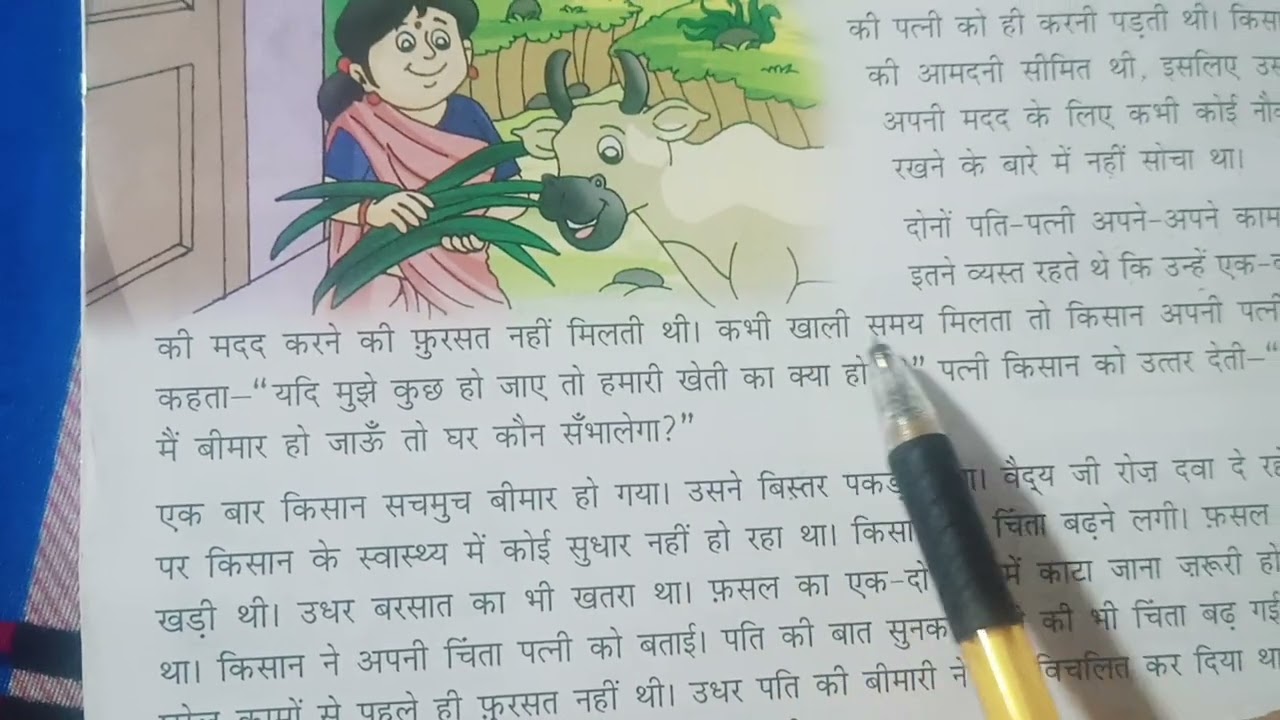 की पत्नी को ही करनी पड़ती थी।
की आमदनी सीमित थी, इसलिए
अपनी मदद के लिए कभी कोई
रखने के बारे में नहीं सोचा था।
दोनों पति-पत्नी अपने-अपने
इतने व्यस्त रहते थे कि उन्हें
की मदद करने की फ़ुरसत नहीं मिलती थी। कभी खाली समय मिलता तो किसान अपनी पत्नी
कहता–“यदि मुझे कुछ हो जाए तो हमारी खेती का क्या हो ” पत्नी किसान को उत्तर देती–“
मैं बीमार हो जाऊँ तो घर कौन सँभालेगा?”
एक बार किसान सचमुच बीमार हो गया। उसने बिस्तर वैद्य जी रोज़ दवा दे
पर किसान के स्वास्थ्य में कोई सुधार नहीं हो रहा था। चिंता बढ़ने लगी। फ़सल
खड़ी थी। उधर बरसात का भी खतरा था। फ़सल का में काटा जाना ज़रूरी हो
था। किसान ने अपनी चिंता पत्नी को बताई। पति की बात की भी चिंता बढ़ गई
कामों से पहले ही फ़ुरसत नहीं थी। उधर पति की बीमारी ने विचलित कर दिया था